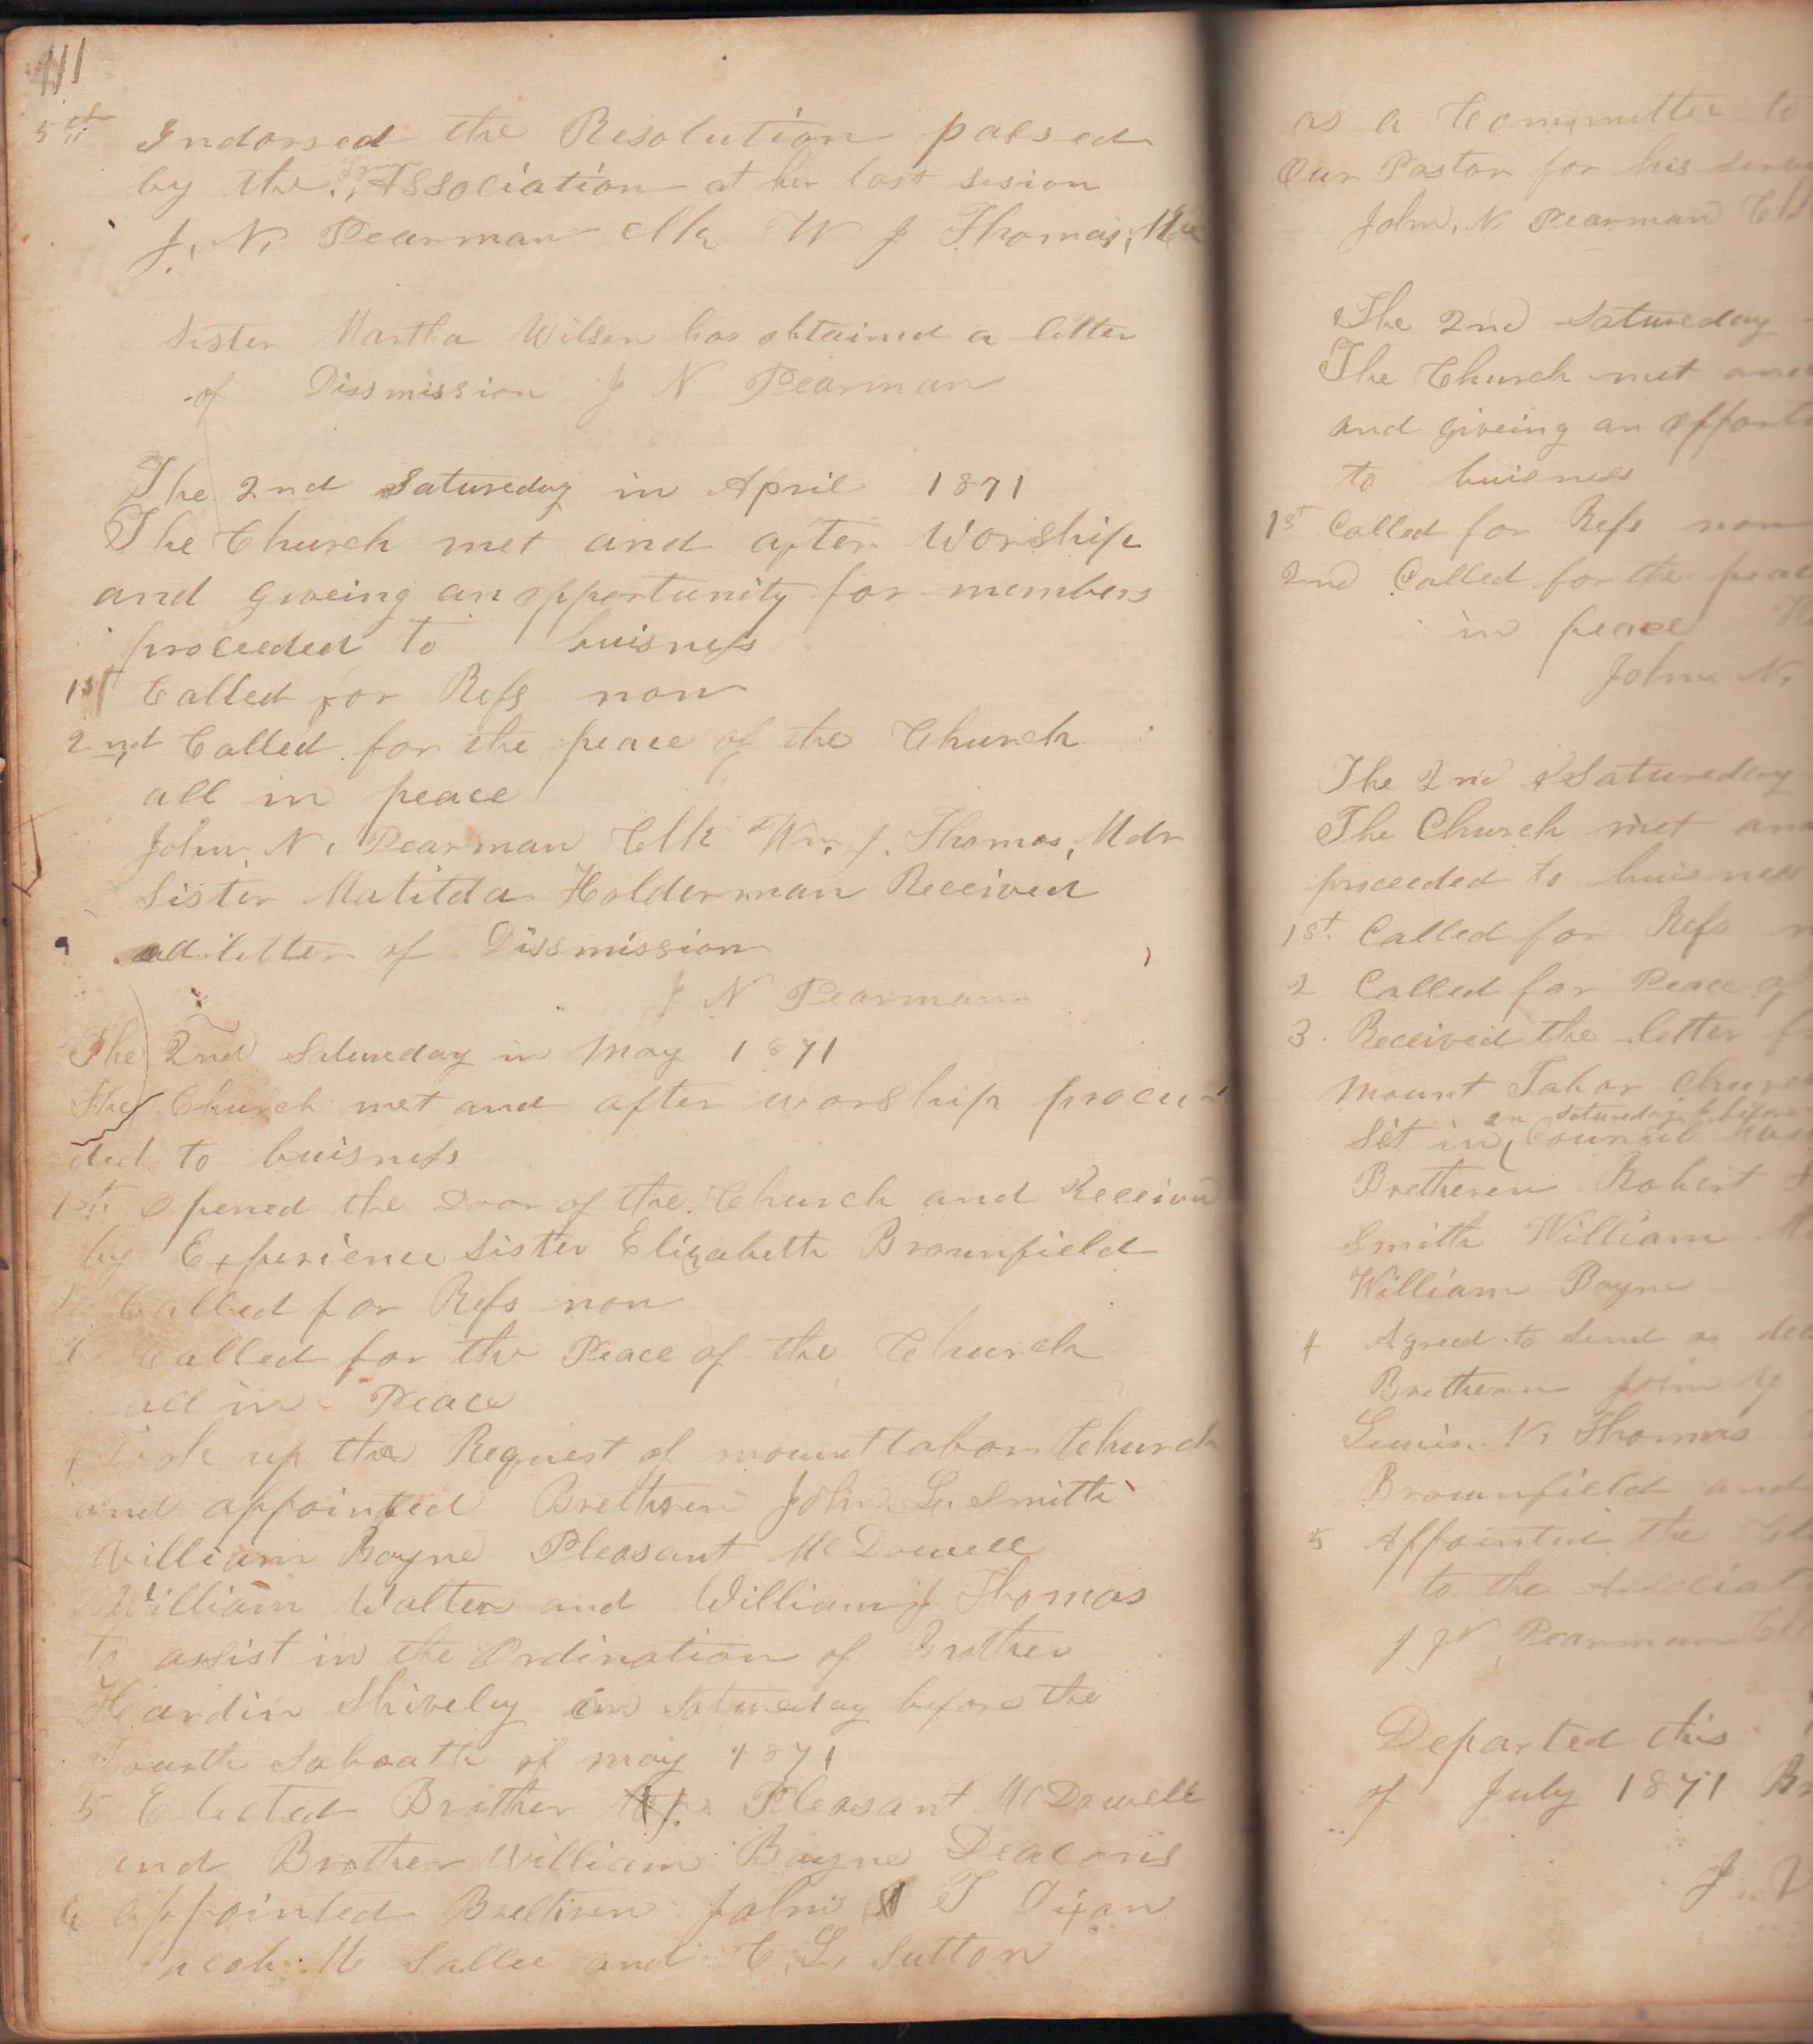 111
5th Indorsed the Resolution passed
by the Association at her last sesion
J. N. Pearman Clk W J Thomas,
Sister Martha Wilson has obtained a letter
of Dissmission J N Pearman
The 2nd Satureday in April 1871
The Church met and after Worship
and giveing an opportunity for members
proceeded to buisness
1st Called for Refs non
2nd Called for the peace of the Church
all in peace
John, N, Pearman Clk Wm. J. Thomas, Mdr
Sister Matilda Holderman Received
a letter of Dissmission
J N Pearman
The 2nd Satureday in May 1871
The Church met and after worship procee
ded to buisness
1st Opened the Door of the Church and Receivd
by Experience Sister Elizabeth Brownfield
Called for Refs non
Called for the Peace of the Church
all in Peace
up the Request of mount tabor Church
and appointed Brethren John L. Smith
William Bayne Pleasant McDowell
William Walters and William J Thomas
to assist in the Ordination of Brother
Hardin Shively on Satureday before the
fourth Sabaath of may 1871
5 Elected Brother Pleasant McDowell
and Brother William Bayne Deacons
6 appointed Brethren John T Dixon
Jacob M Sallee and C. L. Sutton
as a Committee to
Our Pastor for his
John, N. Pearman
The 2nd Satureday
The Church met and
and giveing an
to buisness
1st Called for Refs non
2nd Called for the peace
in peace
John N.
The 2nd Satureday
The Church met and
proceeded to buisness
1st Called for Refs
2 Called for Peace of
3. Received the letter
Mount Tabor Church
on Satureday before
Set in Council
Bretheren Robert
Smith William
William Bayne
4 Agreed to Send as
Bretheren John
Lewis. N. Thomas
Brownfield and
5 Appointed the
to the
J N Pearman
Departed this
of July 1871
J